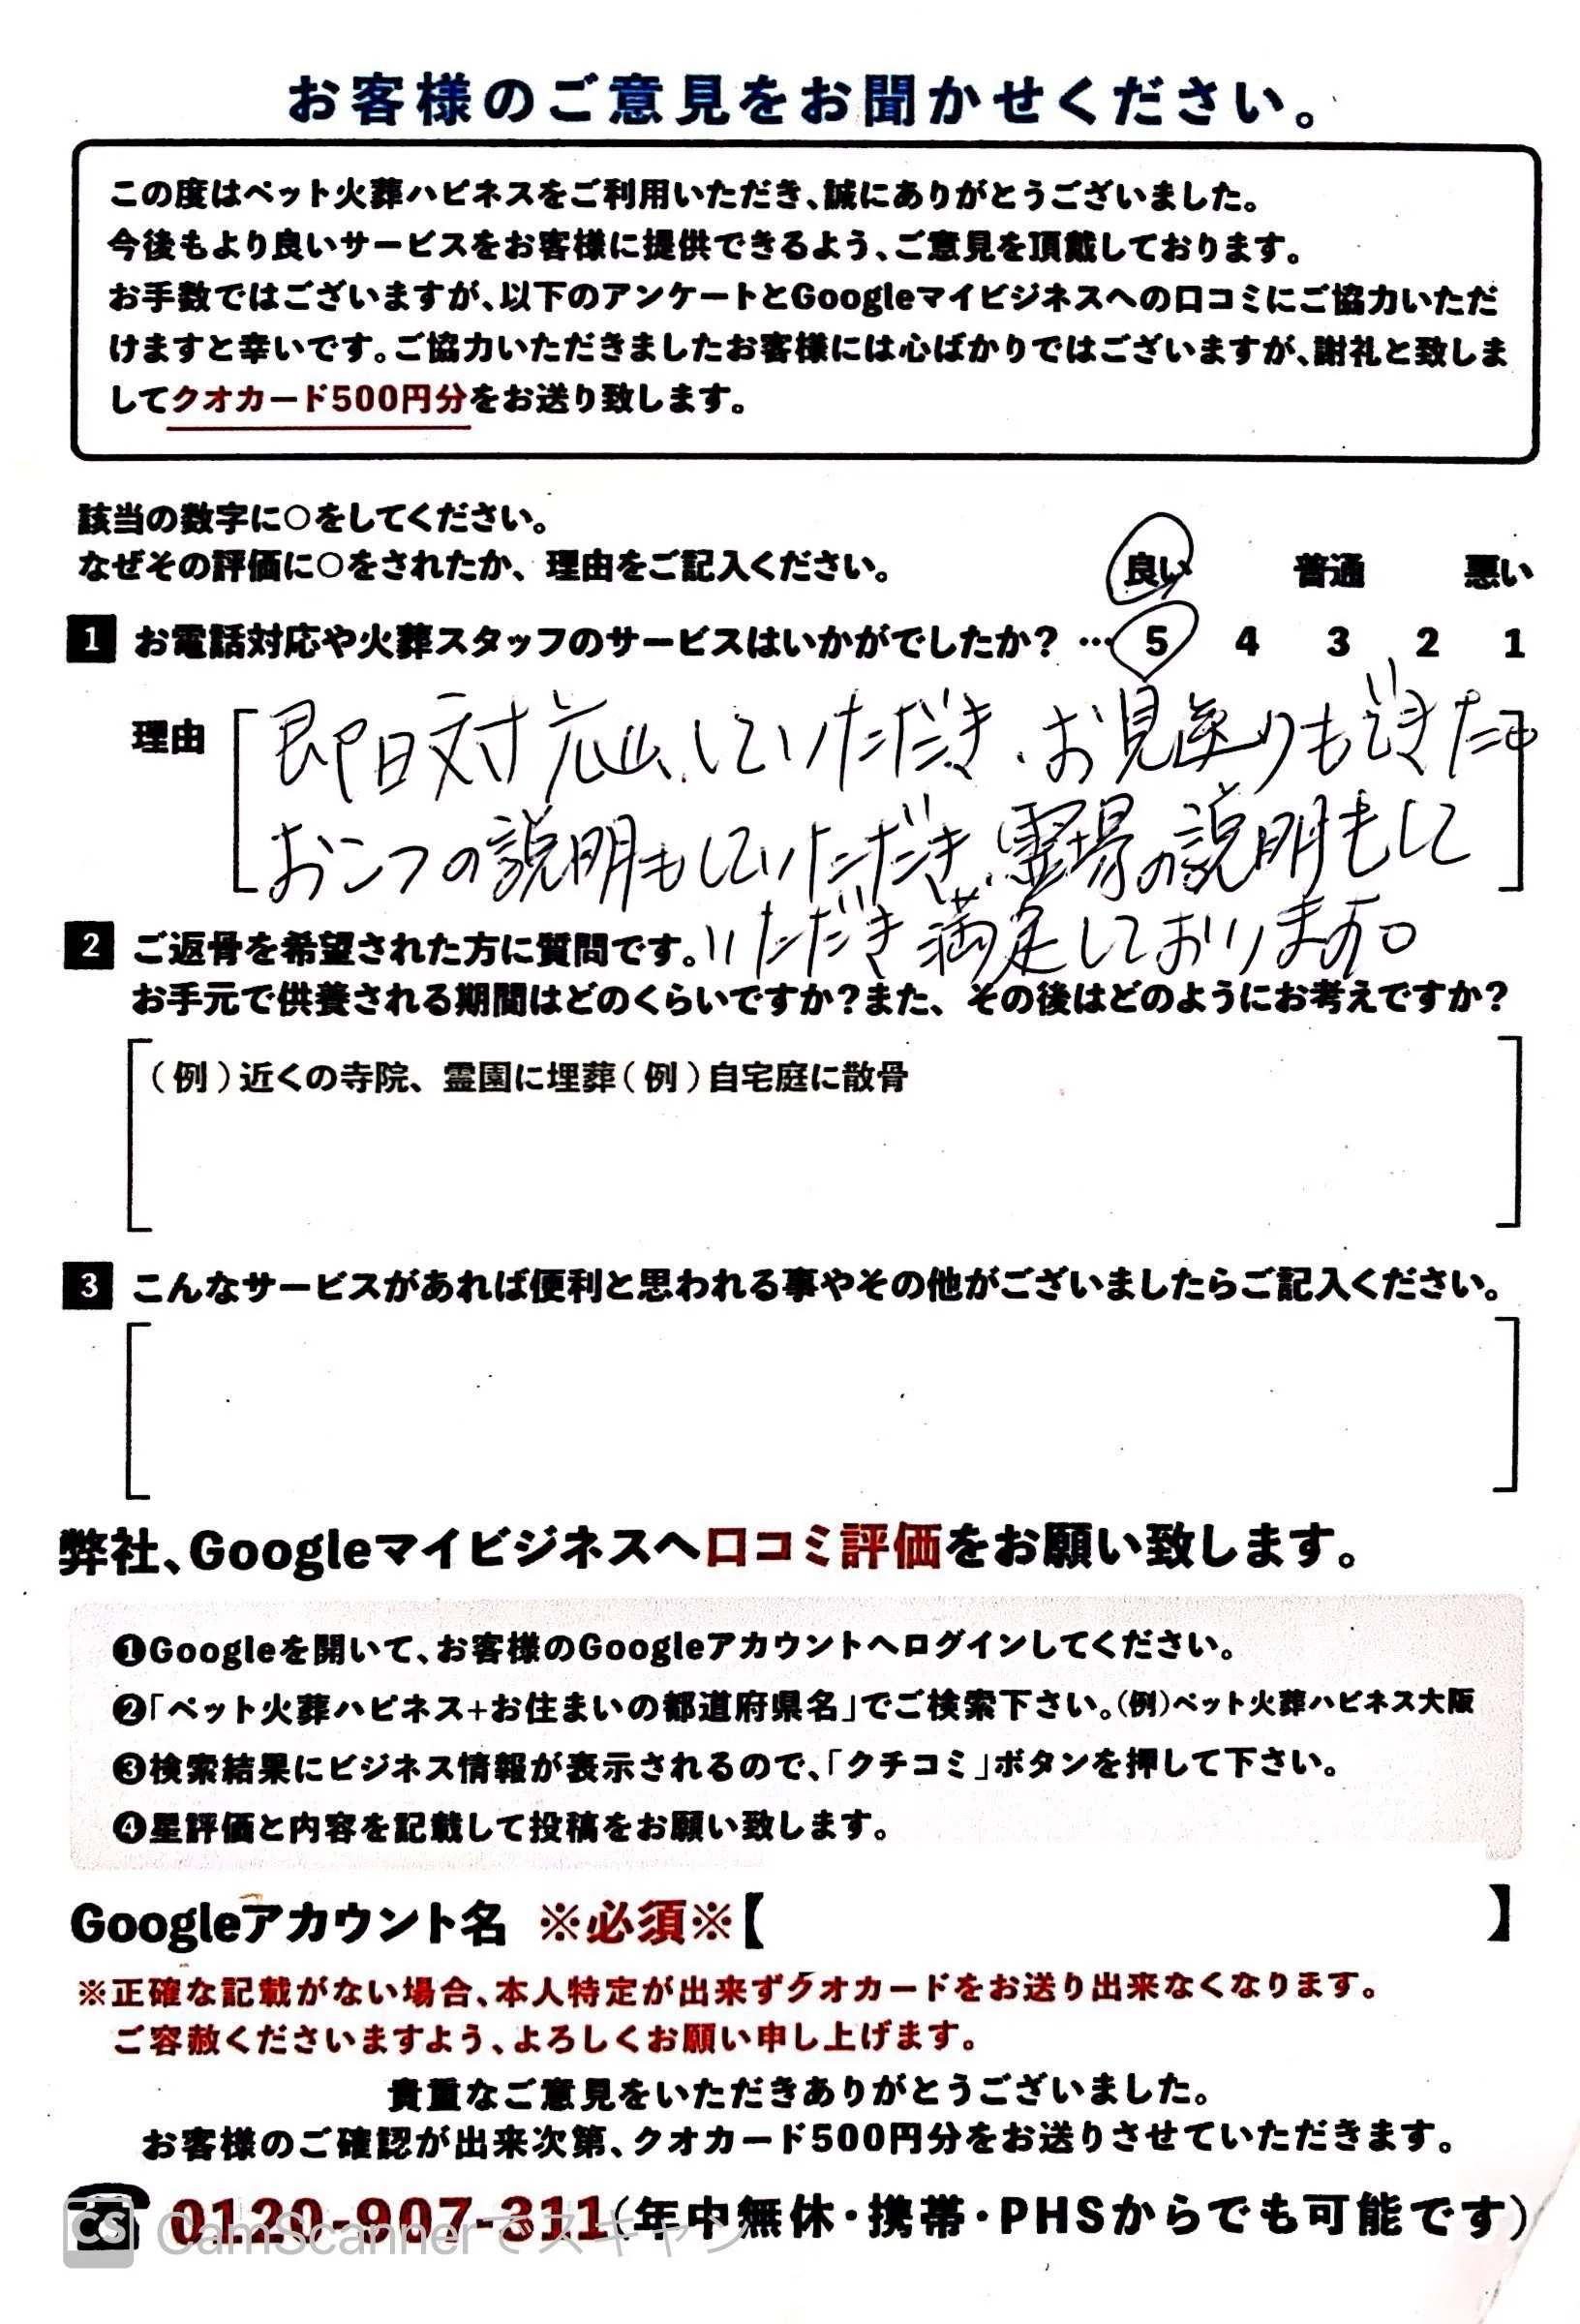 お客様のご意見をお聞かせください。
この度はペット火葬ハピネスをご利用いただき、誠にありがとうございました。
今後もより良いサービスをお客様に提供できるよう、ご意見を頂戴しております。
お手数ではございますが、以下のアンケートとGoogleマイビジネスへの口コミにご協力いただ
けますと幸いです。ご協力いただきましたお客様には心ばかりではございますが、謝礼と致しま
してクオカード500円分をお送り致します。
該当の数字に○をしてください。
なぜその評価に○をされたか、理由をご記入ください。
良い 普通 悪い
1 お電話対応や火葬スタッフのサービスはいかがでしたか？…5 4 3 2 1
理由 即日対応していただき、お見送りもできた
おこつの説明もしていただき、霊場の説明もして
いただき満足しております。
2 ご返骨を希望された方に質問です。
お手元で供養される期間はどのくらいですか？また、その後はどのようにお考えですか？
（例）近くの寺院、霊園に埋葬（例）自宅庭に散骨
3 こんなサービスがあれば便利と思われる事やその他がございましたらご記入ください。
弊社、Googleマイビジネスへ口コミ評価をお願い致します。
❶Googleを開いて、お客様のGoogleアカウントへログインしてください。
❷「ペット火葬ハピネス+お住まいの都道府県名」でご検索下さい。(例)ペット火葬ハピネス大阪
❸検索結果にビジネス情報が表示されるので、「クチコミ」ボタンを押して下さい。
❹星評価と内容を記載して投稿をお願い致します。
Googleアカウント名 ※必須※【 】
※正確な記載がない場合、本人特定が出来ずクオカードをお送り出来なくなります。
ご容赦くださいますよう、よろしくお願い申し上げます。
貴重なご意見をいただきありがとうございました。
お客様のご確認が出来次第、クオカード500円分をお送りさせていただきます。
☎ 0120-907-311(年中無休・携帯・PHSからでも可能です)
CS CamScannerでスキャン